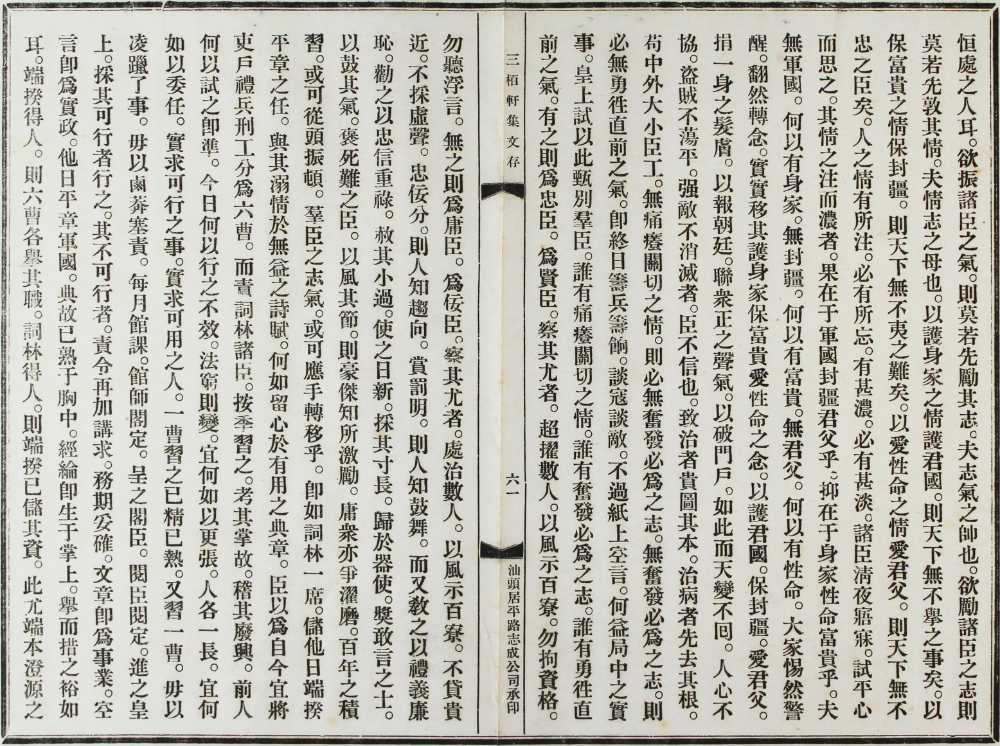 恒處之人耳。欲振諸臣之氣。則莫若先勵其志。夫志氣之帥也。欲勵諸臣之志則
莫若先敦其情。夫情志之母也。以護身家之情護君國。則天下無不擧之事矣。以
保富貴之情保封疆。則天下無不夷之難矣。以愛性命之情愛君父。則天下無不
忠之臣矣。人之情有所注。必有所忘。有甚濃。必有甚淡。諸臣淸夜寤寐。試平心
而思之。其情之注而濃者。果在于軍國封疆君父乎。抑在于身家性命富貴乎。夫
無軍國。何以有身家。無封疆。何以有富貴。無君父。何以有性命。大家惕然警
醒。翻然轉念。實實移其護身家保富貴愛性命之念。以護君國。保封疆。愛君父。
捐一身之髮膚。以報朝廷。聯衆正之聲氣。以破門戶。如此而天變不囘。人心不
協。盜賊不蕩平。强敵不消滅者。臣不信也。致治者貴圖其本。治病者先去其根。
苟中外大小臣工。無痛癢關切之情。則必無奮發必爲之志。無奮發必爲之志。則
必無勇徃直前之氣。卽終日籌兵籌餉。談寇談敵。不過紙上空言。何益局中之實
事。皇上試以此甄別羣臣。誰有痛癢關切之情。誰有奮發必爲之志。誰有勇徃直
前之氣。有之則爲忠臣。爲賢臣。察其尤者。超擢數人。以風示百寮。勿拘資格。
三栢軒集文存
六一
汕頭居平路志成公司承印
勿聽浮言。無之則爲庸臣。爲佞臣。察其尤者。處治數人。以風示百寮。不貸貴
近。不採虛聲。忠佞分。則人知趨向。賞罰明。則人知鼓舞。而又敎之以禮義廉
恥。勸之以忠信重祿。赦其小過。使之日新。採其寸長。歸於器使。獎敢言之士。
以鼓其氣。褒死難之臣。以風其節。則豪傑知所激勵。庸衆亦爭濯磨。百年之積
習。或可從頭振頓。羣臣之志氣。或可應手轉移乎。卽如詞林一席。儲他日端揆
平章之任。與其溺情於無益之詩賦。何如留心於有用之典章。臣以爲自今宜將
吏戶禮兵刑工分爲六曹。而責詞林諸臣。按季習之。考其掌故。稽其廢興。前人
何以試之卽準。今日何以行之不效。法窮則變。宜何如以更張。人各一長。宜何
如以委任。實求可行之事。實求可用之人。一曹習之已精已熟。又習一曹。毋以
凌躐了事。毋以鹵莽塞責。每月館課。館師閣定。呈之閣臣。閱臣閱定。進之皇
上。採其可行者行之。其不可行者。責令再加講求。務期妥確。文章卽爲事業。空
言卽爲實政。他日平章軍國。典故已熟于胸中。經綸卽生于掌上。擧而措之裕如
耳。端揆得人。則六曹各擧其職。詞林得人。則端揆已儲其資。此尤端本澄源之